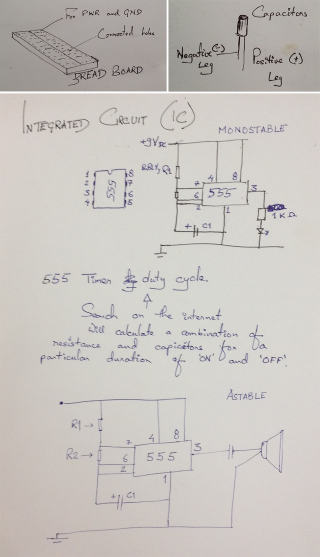 For PWR and GND
Connected holes
BREAD BOARD
Capacitors
Negative (-)
Leg
Positive (+)
Leg
INTEGRATED CIRCUIT (IC)
MONOSTABLE
+9V
1
2
3
4
555
8
7
6
5
R1
7
6
2
4
8
555
3
1
+
C1
1 KΩ
555 Timer duty cycle.
Search on the internet
will calculate a combination of
resistance and capacitors for a
particular duration of 'ON' and 'OFF'.
ASTABLE
R1
R2
7
6
2
4
8
555
3
1
+
C1